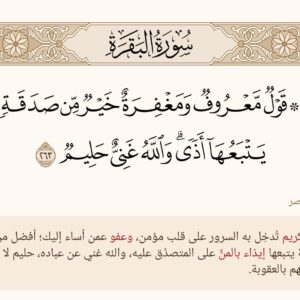 سُورَةُ البَقَرَةِ
۞ قَوْلٌ مَّعْرُوفٌ وَمَغْفِرَةٌ خَيْرٌ مِّن صَدَقَةٍ
يَتْبَعُهَآ أَذًى ۗ وَٱللَّهُ غَنِىٌّ حَلِيمٌ ٢٦٣
كريم تُدخِل به السرور على قلب مؤمن، وعفو عمن أساء إليك؛ أفضل من
يتبعها إيذاء بالمنّ على المتصدَّق عليه، والله غني عن عباده، حليم لا
هم بالعقوبة.